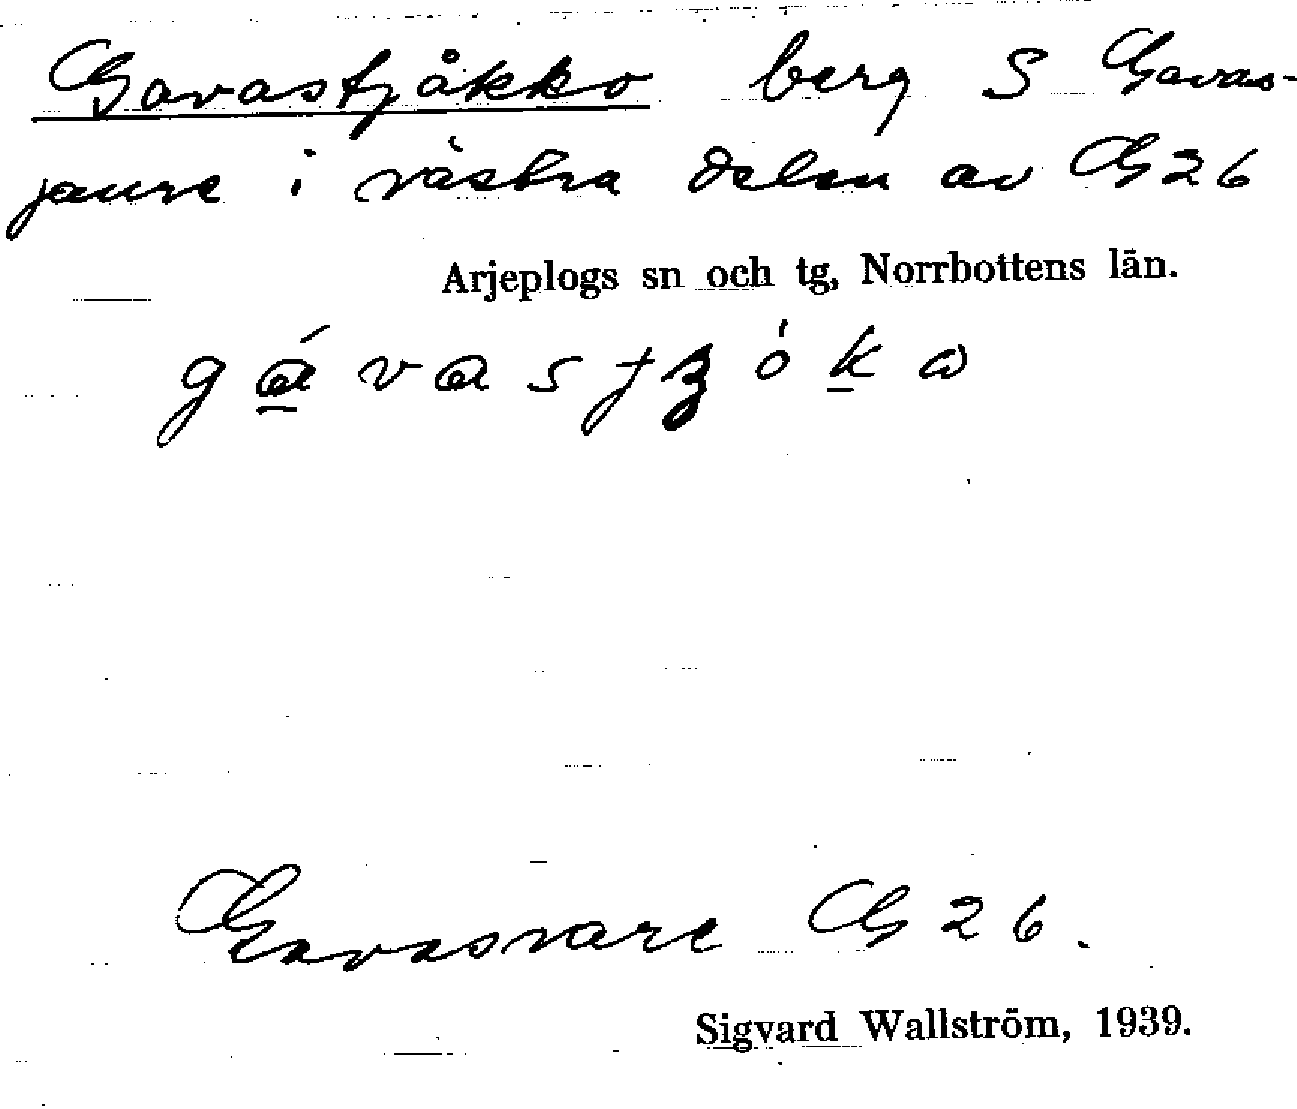 Gavastjåkko berg S Gavas-
jaure i västra delen av G 26
Arjeplogs sn och tg, Norrbottens län.
gá̱vastʒóḵɷ
Gavasvare G 26.
Sigvard Wallström, 1939.